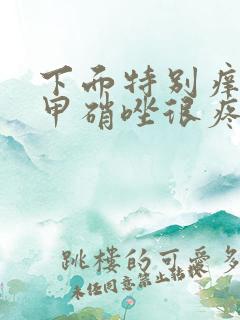 下而特别痒
甲硝唑很疼
跳楼的可爱多
未任同意禁止转换